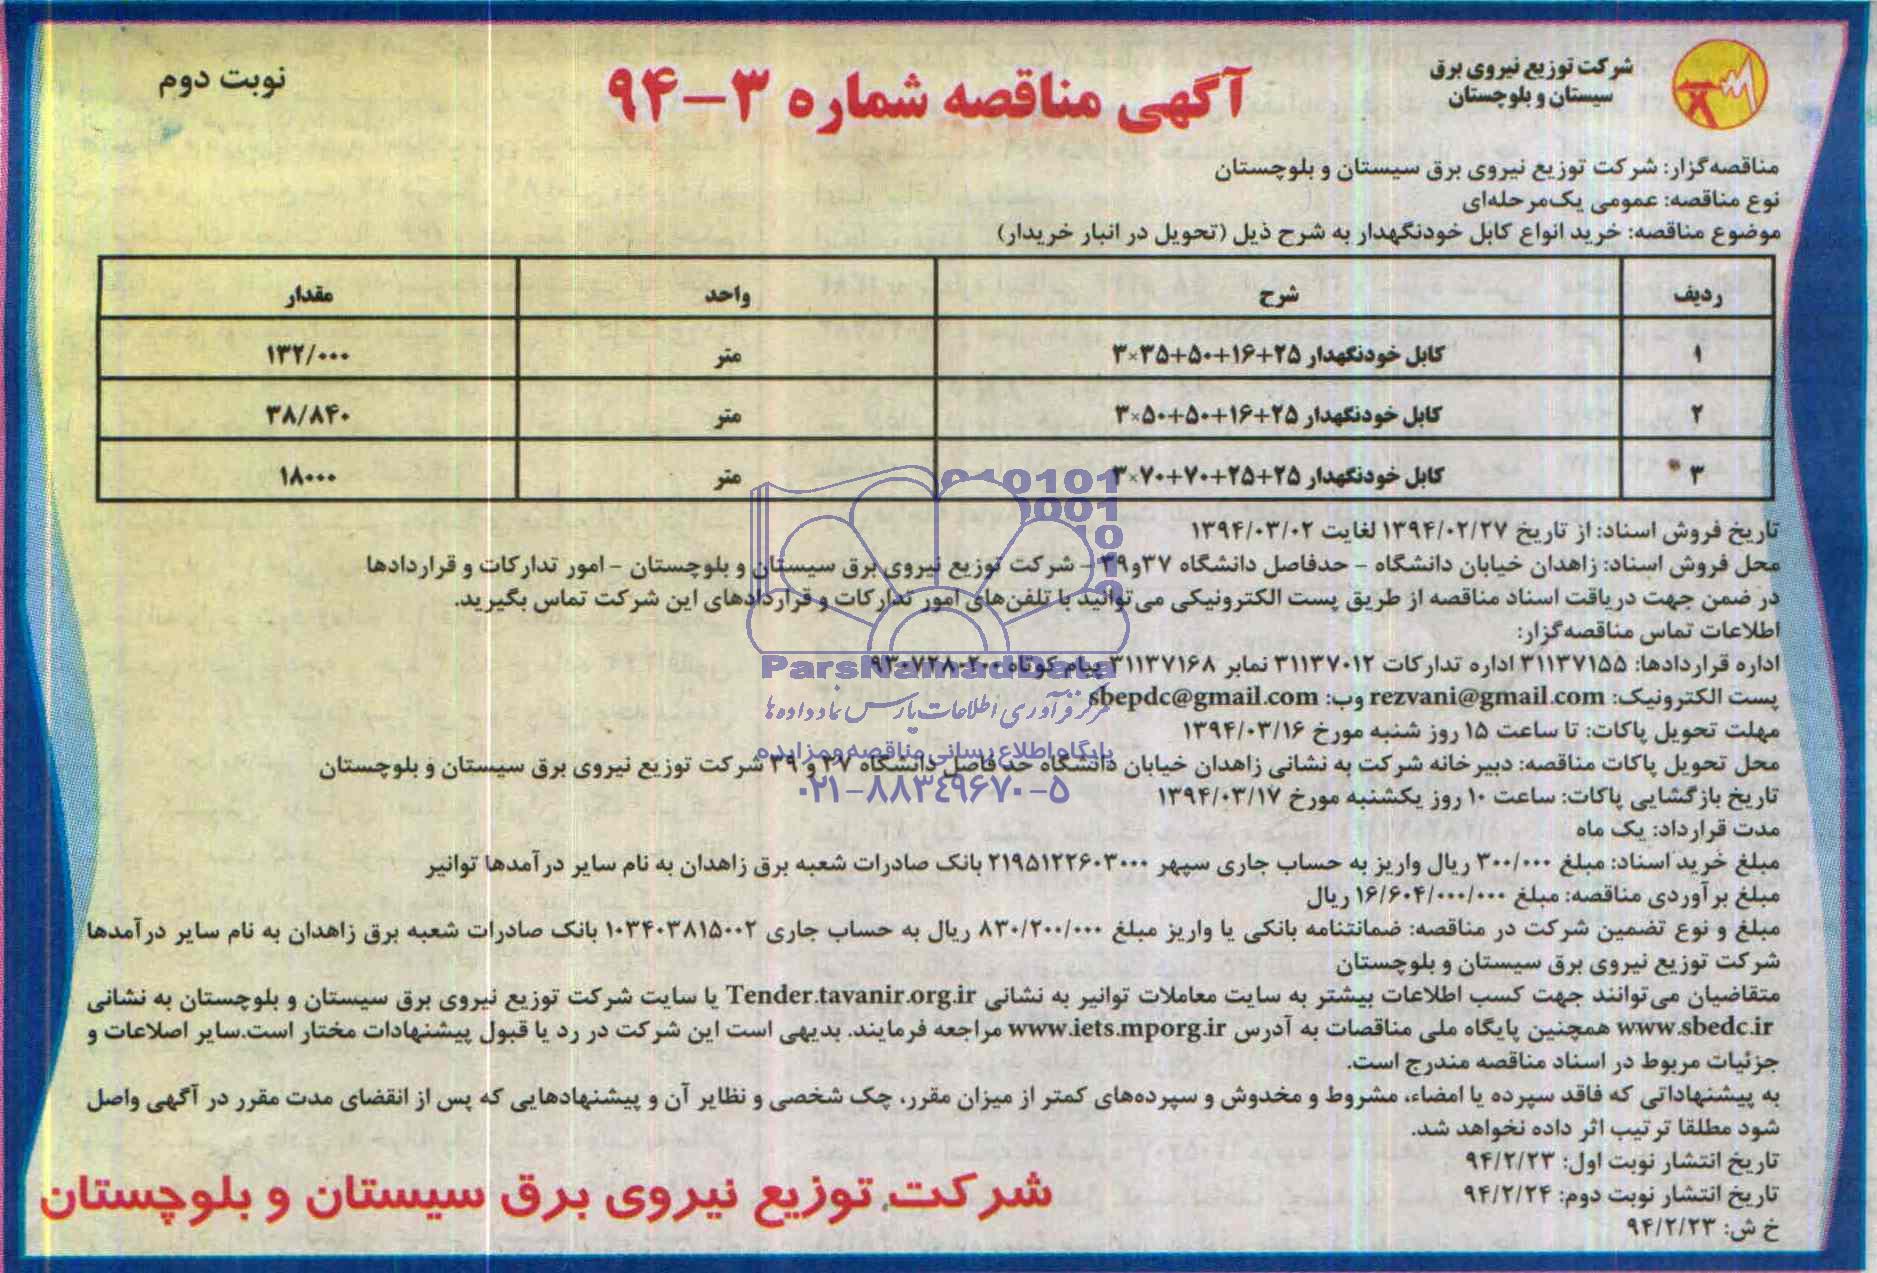 شرکت توزیع نیروی برق
سیستان و بلوچستان
آگهی مناقصه شماره ۳-۹۴
نوبت دوم
مناقصه‌گزار: شرکت توزیع نیروی برق سیستان و بلوچستان
نوع مناقصه: عمومی یک‌مرحله‌ای
موضوع مناقصه: خرید انواع کابل خودنگهدار به شرح ذیل (تحویل در انبار خریدار)
ردیف شرح واحد مقدار
۱ کابل خودنگهدار ۲۵+۱۶+۵۰+۳۵×۳ متر ۱۳۲/۰۰۰
۲ کابل خودنگهدار ۲۵+۱۶+۵۰+۵۰×۳ متر ۳۸/۸۴۰
۳ کابل خودنگهدار ۲۵+۲۵+۷۰+۷۰×۳ متر ۱۸۰۰۰
تاریخ فروش اسناد: از تاریخ ۱۳۹۴/۰۲/۲۷ لغایت ۱۳۹۴/۰۳/۰۲
محل فروش اسناد: زاهدان خیابان دانشگاه - حدفاصل دانشگاه ۳۷و۳۹ - شرکت توزیع نیروی برق سیستان و بلوچستان - امور تدارکات و قراردادها
در ضمن جهت دریافت اسناد مناقصه از طریق پست الکترونیکی می‌توانید با تلفن‌های امور تدارکات و قراردادهای این شرکت تماس بگیرید.
اطلاعات تماس مناقصه‌گزار:
اداره قراردادها: ۳۱۱۳۷۱۵۵ اداره تدارکات ۳۱۱۳۷۰۱۲ نمابر ۳۱۱۳۷۱۶۸ پیام کوتاه ۹۳۰۷۲۸۰۲۰۰
پست الکترونیک: rezvani@gmail.com وب: sbepdc@gmail.com
مهلت تحویل پاکات: تا ساعت ۱۵ روز شنبه مورخ ۱۳۹۴/۰۳/۱۶
محل تحویل پاکات مناقصه: دبیرخانه شرکت به نشانی زاهدان خیابان دانشگاه حد فاصل دانشگاه ۳۷ و ۳۹ شرکت توزیع نیروی برق سیستان و بلوچستان
تاریخ بازگشایی پاکات: ساعت ۱۰ روز یکشنبه مورخ ۱۳۹۴/۰۳/۱۷
مدت قرارداد: یک ماه
مبلغ خرید اسناد: مبلغ ۳۰۰/۰۰۰ ریال واریز به حساب جاری سپهر ۲۱۹۵۱۲۲۶۰۳۰۰۰ بانک صادرات شعبه برق زاهدان به نام سایر درآمدها توانیر
مبلغ برآوردی مناقصه: مبلغ ۱۶/۶۰۴/۰۰۰/۰۰۰ ریال
مبلغ و نوع تضمین شرکت در مناقصه: ضمانتنامه بانکی یا واریز مبلغ ۸۳۰/۲۰۰/۰۰۰ ریال به حساب جاری ۱۰۳۴۰۳۸۱۵۰۰۲ بانک صادرات شعبه برق زاهدان به نام سایر درآمدها
شرکت توزیع نیروی برق سیستان و بلوچستان
متقاضیان می‌توانند جهت کسب اطلاعات بیشتر به سایت معاملات توانیر به نشانی Tender.tavanir.org.ir یا سایت شرکت توزیع نیروی برق سیستان و بلوچستان به نشانی
www.sbedc.ir همچنین پایگاه ملی مناقصات به آدرس www.iets.mporg.ir مراجعه فرمایند. بدیهی است این شرکت در رد یا قبول پیشنهادات مختار است.سایر اصلاعات و
جزئیات مربوط در اسناد مناقصه مندرج است.
به پیشنهاداتی که فاقد سپرده یا امضاء، مشروط و مخدوش و سپرده‌های کمتر از میزان مقرر، چک شخصی و نظایر آن و پیشنهادهایی که پس از انقضای مدت مقرر در آگهی واصل
شود مطلقا ترتیب اثر داده نخواهد شد.
تاریخ انتشار نوبت اول: ۹۴/۲/۲۳
تاریخ انتشار نوبت دوم: ۹۴/۲/۲۴
خ ش: ۹۴/۲/۲۳
شرکت توزیع نیروی برق سیستان و بلوچستان
ParsNamadData
مرکز فرآوری اطلاعات پارس نماد داده‌ها
پایگاه اطلاع رسانی مناقصه و مزایده
۰۲۱-۸۸۳۴۹۶۷۰-۵